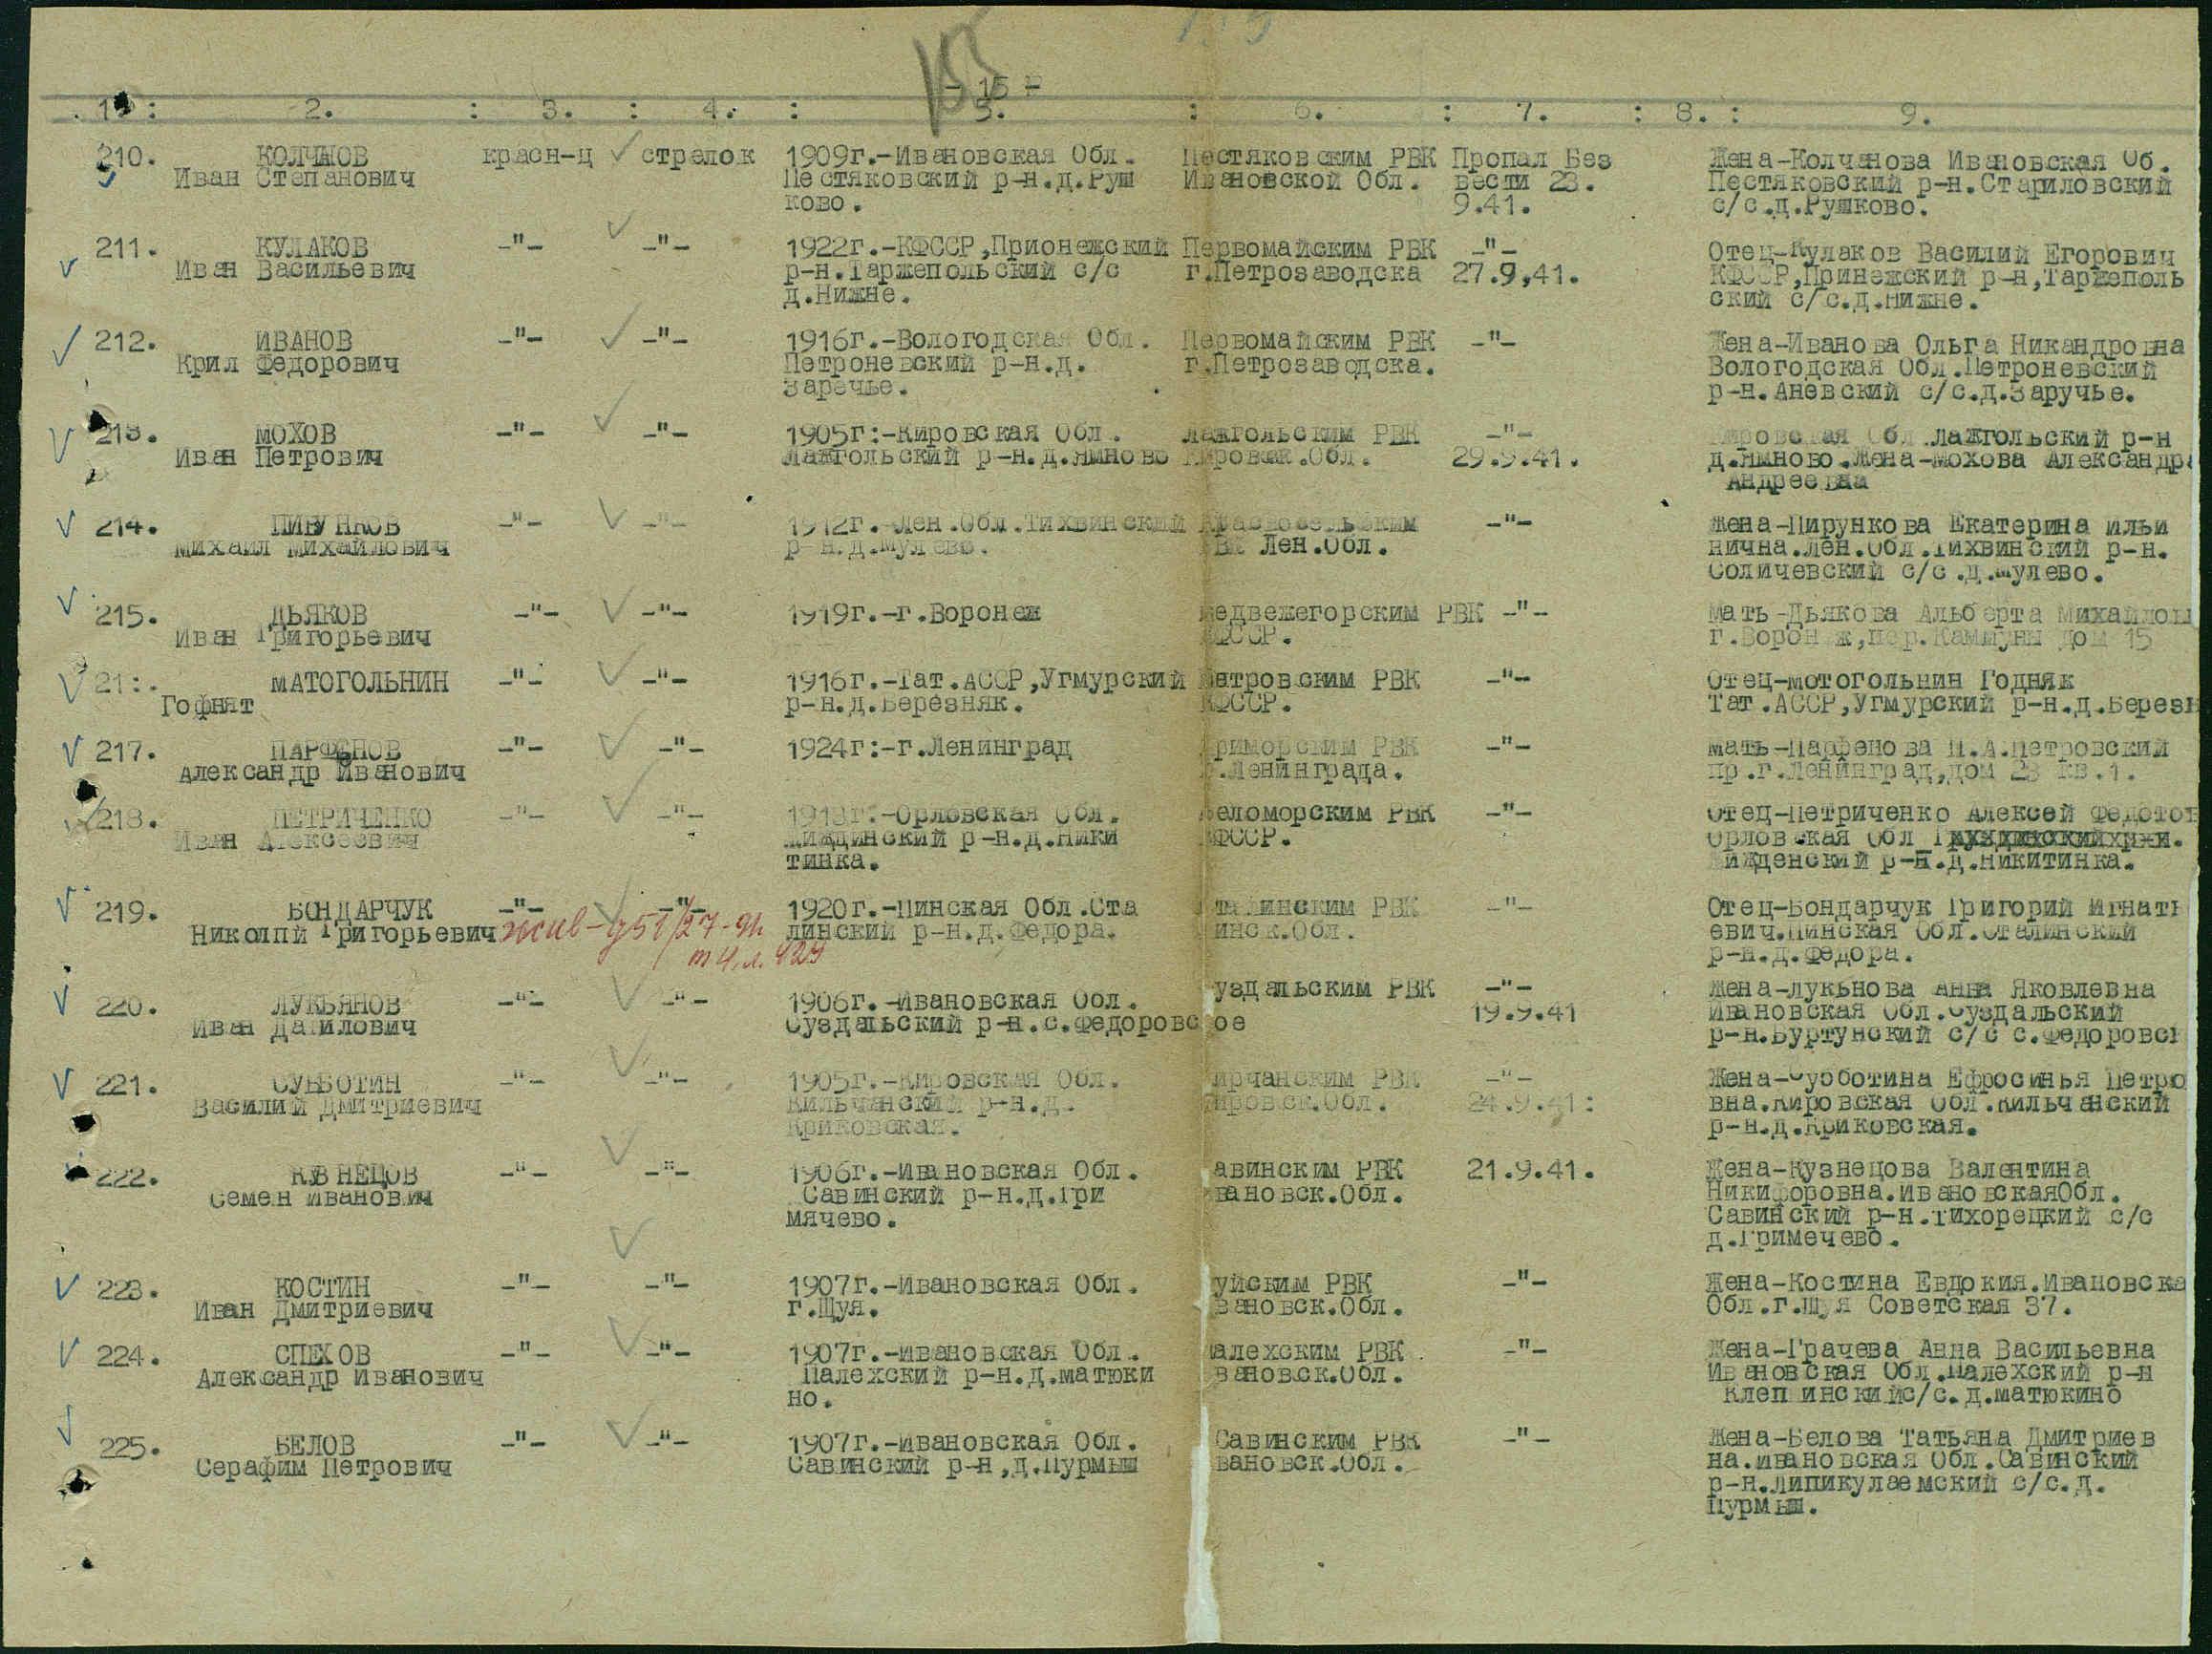 155
- 15 -
1. : 2. : 3. : 4. : 5. : 6. : 7. : 8. : 9.
210. КОЛЧАНОВ красн-ц стрелок 1909г.-Ивановская Обл. Пестяковским РВК Пропал Без Жена-Колчанова Ивановская Об.
Иван Степанович Пестяковский р-н.д.Руш Ивановской Обл. вести 23. Пестяковский р-н.Стариловский
ково. 9.41. с/с.д.Рушково.
211. КУЛАКОВ -"- -"- 1922г.-КФССР,Прионежский Первомайским РВК -"- Отец-Кулаков Василий Егорович
Иван Васильевич р-н.Таржепольский с/с г.Петрозаводска 27.9,41. КФССР,Принежский р-н,Таржеполь
д.Нижне. ский с/с.д.Нижне.
212. ИВАНОВ -"- -"- 1916г.-Вологодская Обл. Первомайским РВК -"- Жена-Иванова Ольга Никандровна
Крил Федорович Петроневский р-н.д. г.Петрозаводска. Вологодская Обл.Петроневский
Заречье. р-н.Аневский с/с.д.Заручье.
213. МОХОВ -"- -"- 1905г:-Кировская Обл. Лажгольским РВК -"- Кировская Обл Лажгольский р-н
Иван Петрович Лажгольский р-н.д.Ямново Кировск.Обл. 29.9.41. д.Ямново.Жена-Мохова Александра
Андреевна
214. -"- -"- 1912г.-Лен.Обл.Тихвинский Красносельским -"- Жена-Пирункова Екатерина Ильи
Михаил Михайлович р-н.д.Мулево. РВК Лен.Обл. нична.Лен.Обл.Тихвинский р-н.
Соличевский с/с.д.Мулево.
215. ДЬЯКОВ -"- -"- 1919г.-г.Воронеж Медвежегорским РВК -"- Мать-Дьякова Альберта Михайлов
Иван Григорьевич КФССР. г.Воронеж,пер.Каммуны дом 15
21:. МАТОГОЛЬНИН -"- -"- 1916г.-Тат.АССР,Угмурский Петровским РВК -"- Отец-Мотогольнин Годняк
Гофнят р-н.д.Березняк. КФССР. Тат.АССР,Угмурский р-н.д.Березн
217. ПАРФЕНОВ -"- -"- 1924г:-г.Ленинград Приморским РВК -"- Мать-Парфенова П.А.Петровский
Александр Иванович г.Ленинграда. пр.г.Ленинград,дом 23 кв.1.
218. ПЕТРИЧЕНКО -"- -"- 1913г:-Орловская Обл. Беломорским РВК -"- Отец-Петриченко Алексей Федотов
Иван Алексеевич Жиждинский р-н.д.Ники КФССР. Орловская Обл
тинка. Жижденский р-н.д.Никитинка.
219. БОНДАРЧУК -"- -"- 1920г.-Пинская Обл.Ста Сталинским РВК -"- Отец-Бондарчук Григорий Игнать
Николпй Григорьевич жив- линский р-н.д.Федора. Пинск.Обл. евич.Пинская Обл.Сталинский
р-н.д.Федора.
220. ЛУКЬЯНОВ -"- -"- 1906г.-Ивановская Обл. уздальским РВК -"- Жена-Лукьнова Анна Яковлевна
Иван Данилович Суздальский р-н.с.Федоровское 19.9.41 Ивановская Обл.Суздальский
р-н.Буртунский с/с с.Федоровск
221. СУББОТИН -"- -"- 1905г.-Кировская Обл. ирчанским РВК -"- Жена-Субботина Ефросинья Петро
Василий Дмитриевич Кильчанский р-н.д. Кировск.Обл. 24.9.41: вна.Кировская Обл.Кильчанский
Криковская. р-н.д.Криковская.
222. КУЗНЕЦОВ -"- -"- 1906г.-Ивановская Обл. авинским РВК 21.9.41. Жена-Кузнецова Валентина
Семен Иванович Савинский р-н.д.Гри вановск.Обл. Никифоровна.ИвановскаяОбл.
мячево. Савинский р-н.Тихорецкий с/с
д.Гримечево.
223. КОСТИН -"- -"- 1907г.-Ивановская Обл. уйским РВК -"- Жена-Костина Евдокия.Ивановска
Иван Дмитриевич г.Шуя. вановск.Обл. Обл.г.Шуя Советская 37.
224. СПЕХОВ -"- -"- 1907г.-Ивановская Обл. алехским РВК -"- Жена-Грачева Анна Васильевна
Александр Иванович Палехский р-н.д.Матюки вановск.Обл. Ивановская Обл.Палехский р-н
но. Клепинскийс/с.д.Матюкино
225. БЕЛОВ -"- -"- 1907г.-Ивановская Обл. Савинским РВК -"- Жена-Белова Татьяна Дмитриев
Серафим Петрович Савинский р-н,д.Пурмыш вановск.Обл. на.Ивановская Обл.Савинский
р-н.Липикулаемский с/с.д.
Пурмыш.